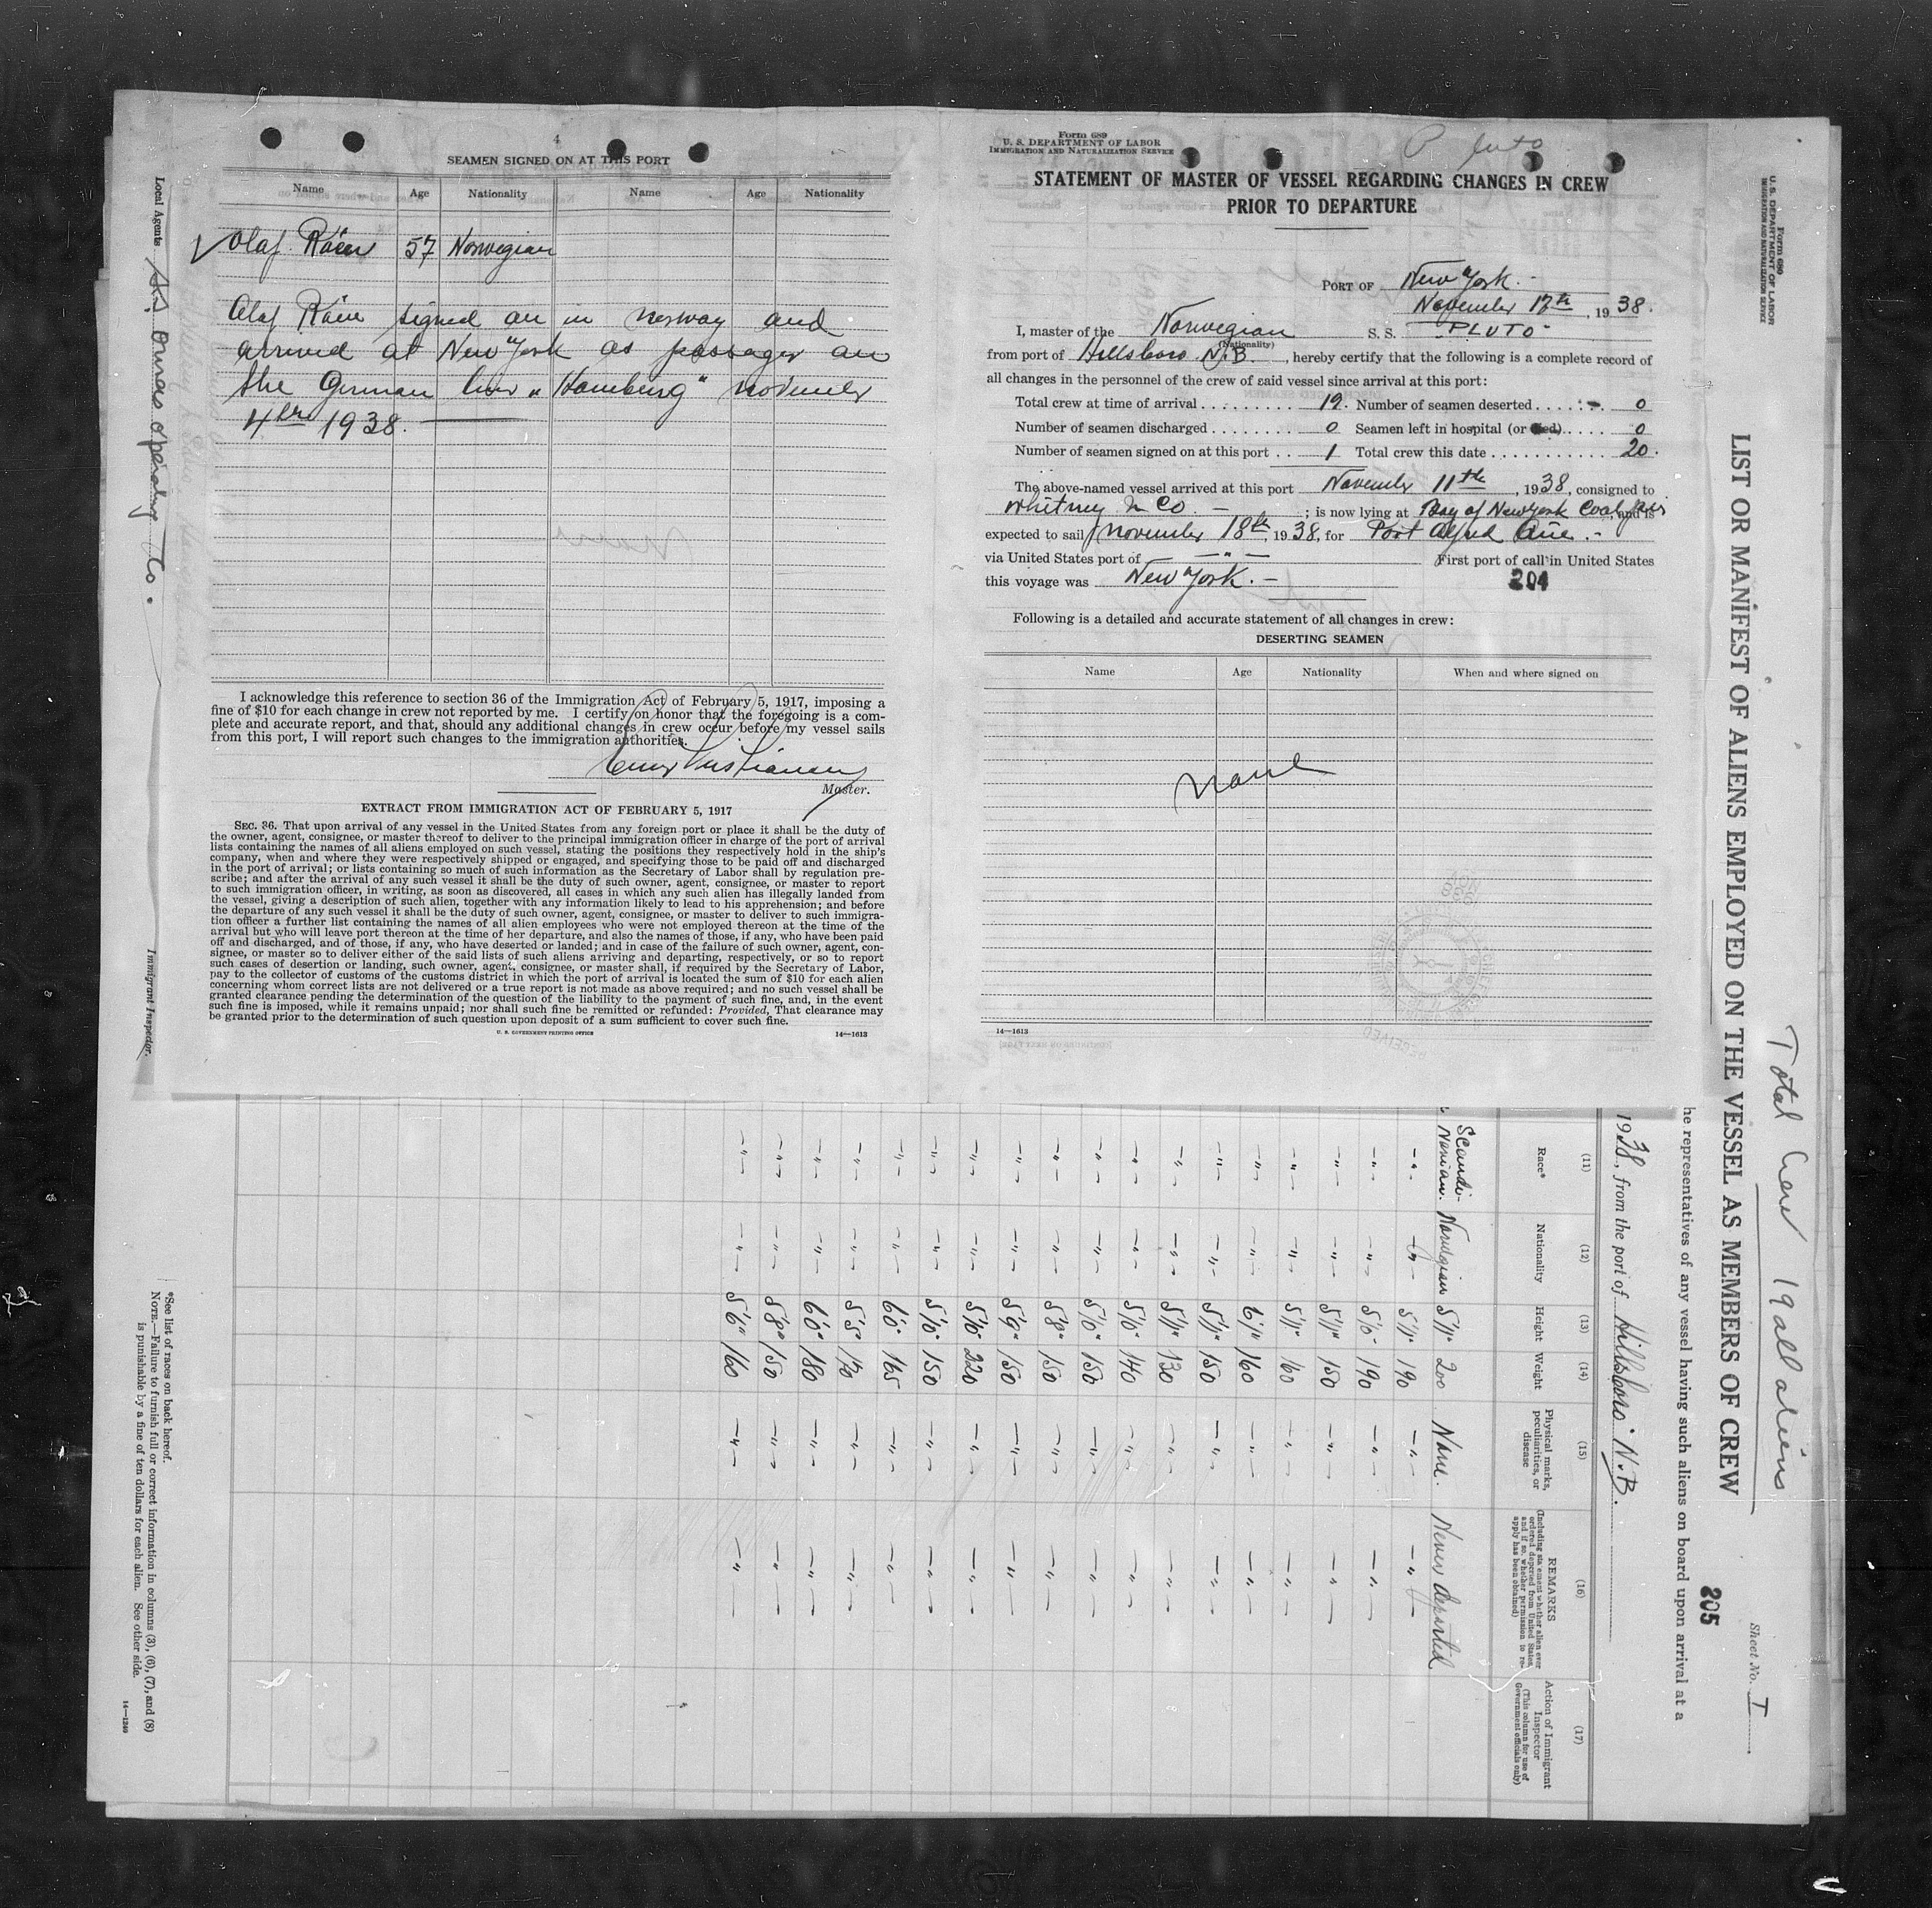 4
SEAMEN SIGNED ON AT THIS PORT
Name Age Nationality Name Age Nationality
Olaf 57 Norwegian
Olaf signed on in Norway and
arrived at New York as passager on
the German "Hamburg"
4 1938.
I acknowledge this reference to section 36 of the Immigration Act of February 5, 1917, imposing a
fine of $10 for each change in crew not reported by me. I certify on honor that the foregoing is a com-
plete and accurate report, and that, should any additional changes in crew occur before my vessel sails
from this port, I will report such changes to the immigration authorities.
Master.
EXTRACT FROM IMMIGRATION ACT OF FEBRUARY 5, 1917
SEC. 36. That upon arrival of any vessel in the United States from any foreign port or place it shall be the duty of
the owner, agent, consignee, or master thereof to deliver to the principal immigration officer in charge of the port of arrival
lists containing the names of all aliens employed on such vessel, stating the positions they respectively hold in the ship's
company, when and where they were respectively shipped or engaged, and specifying those to be paid off and discharged
in the port of arrival; or lists containing so much of such information as the Secretary of Labor shall by regulation pre-
scribe; and after the arrival of any such vessel it shall be the duty of such owner, agent, consignee, or master to report
to such immigration officer, in writing, as soon as discovered, all cases in which any such alien has illegally landed from
the vessel, giving a description of such alien, together with any information likely to lead to his apprehension; and before
the departure of any such vessel it shall be the duty of such owner, agent, consignee, or master to deliver to such immigra-
tion officer a further list containing the names of all alien employees who were not employed thereon at the time of the
arrival but who will leave port thereon at the time of her departure, and also the names of those, if any, who have been paid
off and discharged, and of those, if any, who have deserted or landed; and in case of the failure of such owner, agent, con-
signee, or master so to deliver either of the said lists of such aliens arriving and departing, respectively, or so to report
such cases of desertion or landing, such owner, agent, consignee, or master shall, if required by the Secretary of Labor,
pay to the collector of customs of the customs district in which the port of arrival is located the sum of $10 for each alien
concerning whom correct lists are not delivered or a true report is not made as above required; and no such vessel shall be
granted clearance pending the determination of the question of the liability to the payment of such fine, and, in the event
such fine is imposed, while it remains unpaid; nor shall such fine be remitted or refunded: Provided, That clearance may
be granted prior to the determination of such question upon deposit of a sum sufficient to cover such fine.
U. S. GOVERNMENT PRINTING OFFICE 14—1613
Local Agents Co.
Immigrant Inspector.
Form 689
U. S. DEPARTMENT OF LABOR
IMMIGRATION AND NATURALIZATION SERVICE
Pluto
STATEMENT OF MASTER OF VESSEL REGARDING CHANGES IN CREW
PRIOR TO DEPARTURE
PORT OF New York.
November , 1938.
I, master of the Norwegian S. S. "PLUTO"
(Nationality)
from port of Hillsboro N.B. , hereby certify that the following is a complete record of
all changes in the personnel of the crew of said vessel since arrival at this port:
Total crew at time of arrival 19. Number of seamen deserted 0
Number of seamen discharged 0 Seamen left in hospital (or died) 0
Number of seamen signed on at this port 1 Total crew this date 20.
The above-named vessel arrived at this port November 11th , 1938, consigned to
Whitney & Co. ; is now lying at Bay of New York , and is
expected to sail November 18th, 1938, for Port Alfred
via United States port of — " — First port of call in United States
this voyage was New York. 204
Following is a detailed and accurate statement of all changes in crew:
DESERTING SEAMEN
Name Age Nationality When and where signed on
None
14—1613
Form 680
U. S. DEPARTMENT OF LABOR
IMMIGRATION AND NATURALIZATION SERVICE
Total Crew 19 all aliens
Sheet No. I
LIST OR MANIFEST OF ALIENS EMPLOYED ON THE VESSEL AS MEMBERS OF CREW
205
he representatives of any vessel having such aliens on board upon arrival at a
1938, from the port of Hillsboro. N.B.
(11) (12) (13) (14) (15) (16) (17)
Race* Nationality Height Weight Physical marks, peculiarities, or disease REMARKS (Including statement whether alien ever ordered deported from United States, and if so, whether permission to re-apply has been obtained) Action of Immigrant Inspector (This column for use of Government officials only)
Scandinavian. Norwegian 5'11" 200 None. Never deported
— " — — " — 5'11" 190 — " — — " —
— " — — " — 5'10" 190 — " — — " —
— " — — " — 5'11" 150 — " — — " —
— " — — " — 5'11" 160 — " — — " —
— " — — " — 6'1" 160 — " — — " —
— " — — " — 5'11" 150 — " — — " —
— " — — " — 5'11" 130 — " — — " —
— " — — " — 5'10" 140 — " — — " —
— " — — " — 5'10" 150 — " — — " —
— " — — " — 5'8" 150 — " — — " —
— " — — " — 5'9" 150 — " — — " —
— " — — " — 5'10" 220 — " — — " —
— " — — " — 5'10" 150 — " — — " —
— " — — " — 6'0" 165 — " — — " —
— " — — " — 5'5" — " — — " —
— " — — " — 6'0" 180 — " — — " —
— " — — " — 5'8" 150 — " — — " —
— " — — " — 5'6" 160 — " — — " —
*See list of races on back hereof.
NOTE.—Failure to furnish full or correct information in columns (3), (6), (7), and (8)
is punishable by a fine of ten dollars for each alien. See other side.
14—1240